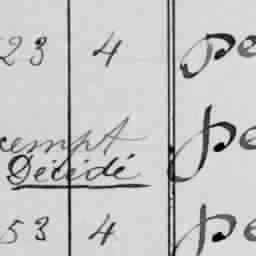 23 4 pe
exempt pe
Décédé
53 4 pe